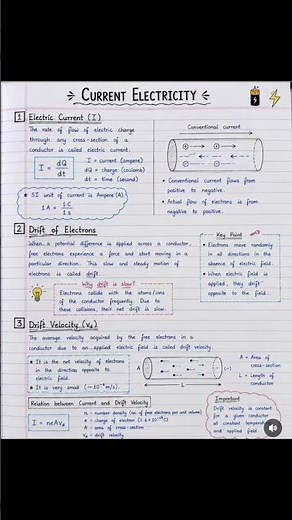 CURRENT ELECTRICITY
1 Electric Current (I)
The rate of flow of electric charge
through any cross-section of a
conductor is called electric current.
I = dQ/dt
I = current (ampere)
dQ = charge (coulomb)
dt = time (second)
SI unit of current is Ampere (A).
1 A = 1 C / 1 s
Conventional current
• Conventional current flows from
positive to negative.
• Actual flow of electrons is from
negative to positive.
2 Drift of Electrons
When a potential difference is applied across a conductor,
free electrons experience a force and start moving in a
particular direction. This slow and steady motion of
electrons is called drift.
Why drift is slow?
Electrons collide with the atoms/ions
of the conductor frequently. Due to
these collisions, their net drift is slow.
Key Point
• Electrons move randomly
in all directions in the
absence of electric field.
• When electric field is
applied, they drift
opposite to the field.
3 Drift Velocity (vd)
The average velocity acquired by the free electrons in a
conductor due to an applied electric field is called drift velocity.
• It is the net velocity of electrons
in the direction opposite to
electric field.
• It is very small (~10⁻⁴ m/s).
A
(-)
L
A = Area of
cross-section
L = Length of
conductor
Relation between Current and Drift Velocity
I = neAvd
n = number density (no. of free electrons per unit volume)
e = charge of electron (1.6 × 10⁻¹⁹ C)
A = area of cross-section
vd = drift velocity
Important
Drift velocity is constant
for a given conductor
at constant temperature
and applied field.